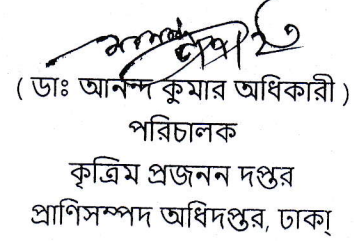 ( ডাঃ আনন্দ কুমার অধিকারী )
পরিচালক
কৃত্রিম প্রজনন দপ্তর
প্রাণিসম্পদ অধিদপ্তর, ঢাকা্